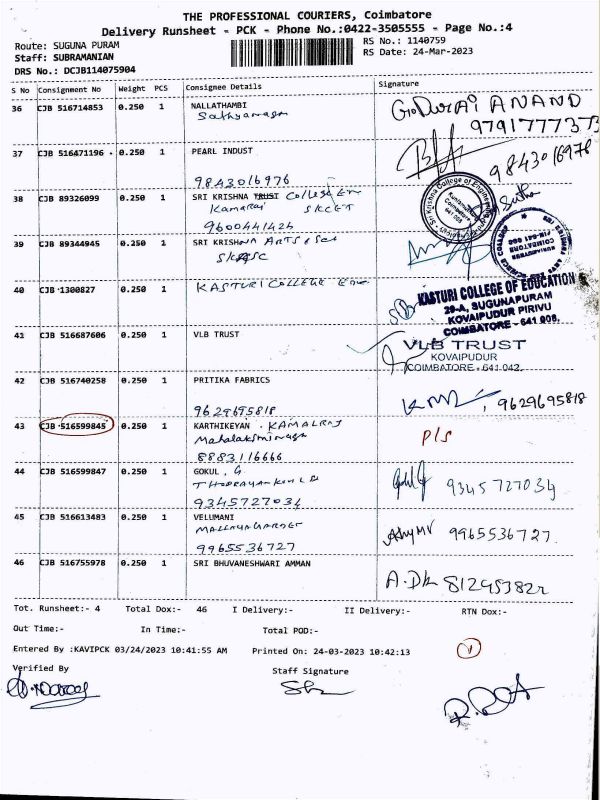 THE PROFESSIONAL COURIERS, Coimbatore
Delivery Runsheet - PCK - Phone No.:0422-3505555 - Page No.:4
Route: SUGUNA PURAM
RS No.: 1140759
Staff: SUBRAMANIAN
RS Date: 24-Mar-2023
DRS No.: DCJB114075904
S No Consignment No Weight PCS Consignee Details Signature
36 CJB 516714853 0.250 1 NALLATHAMBI
ANAND
37 CJB 516471196 0.250 1 PEARL INDUST
9843016976 9843016978
38 CJB 89326099 0.250 1 SRI KRISHNA TRUST College
SKCET
9600441424
39 CJB 89344945 0.250 1 SRI KRISHNA ARTS & Sci
SKASC
40 CJB 1300827 0.250 1 KASTURI COLLEGE
KASTURI COLLEGE OF EDUCATION
29-A, SUGUNAPURAM
KOVAIPUDUR PIRIVU
COIMBATORE - 641 008.
41 CJB 516687606 0.250 1 VLB TRUST
VLB TRUST
KOVAIPUDUR
COIMBATORE - 641 042.
42 CJB 516740258 0.250 1 PRITIKA FABRICS
9629695818 9629695818
43 CJB 516599845 0.250 1 KARTHIKEYAN . KAMALRAJ
P/S
8883116666
44 CJB 516599847 0.250 1 GOKUL . G
9345727034 9345727034
45 CJB 516613483 0.250 1 VELUMANI
9965536727 9965536727
46 CJB 516755978 0.250 1 SRI BHUVANESHWARI AMMAN
Tot. Runsheet:- 4 Total Dox:- 46 I Delivery:- II Delivery:- RTN Dox:-
Out Time:- In Time:- Total POD:-
Entered By :KAVIPCK 03/24/2023 10:41:55 AM Printed On: 24-03-2023 10:42:13
Verified By
Staff Signature